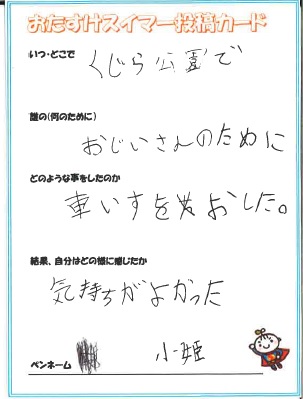 おたすけスイマー投稿カード
いつ・どこで
くじら公園で
誰の(何のために)
おじいさんのために
どのような事をしたのか
車いすをおした。
結果、自分はどの様に感じたか
気持ちがよかった
ペンネーム 小姫